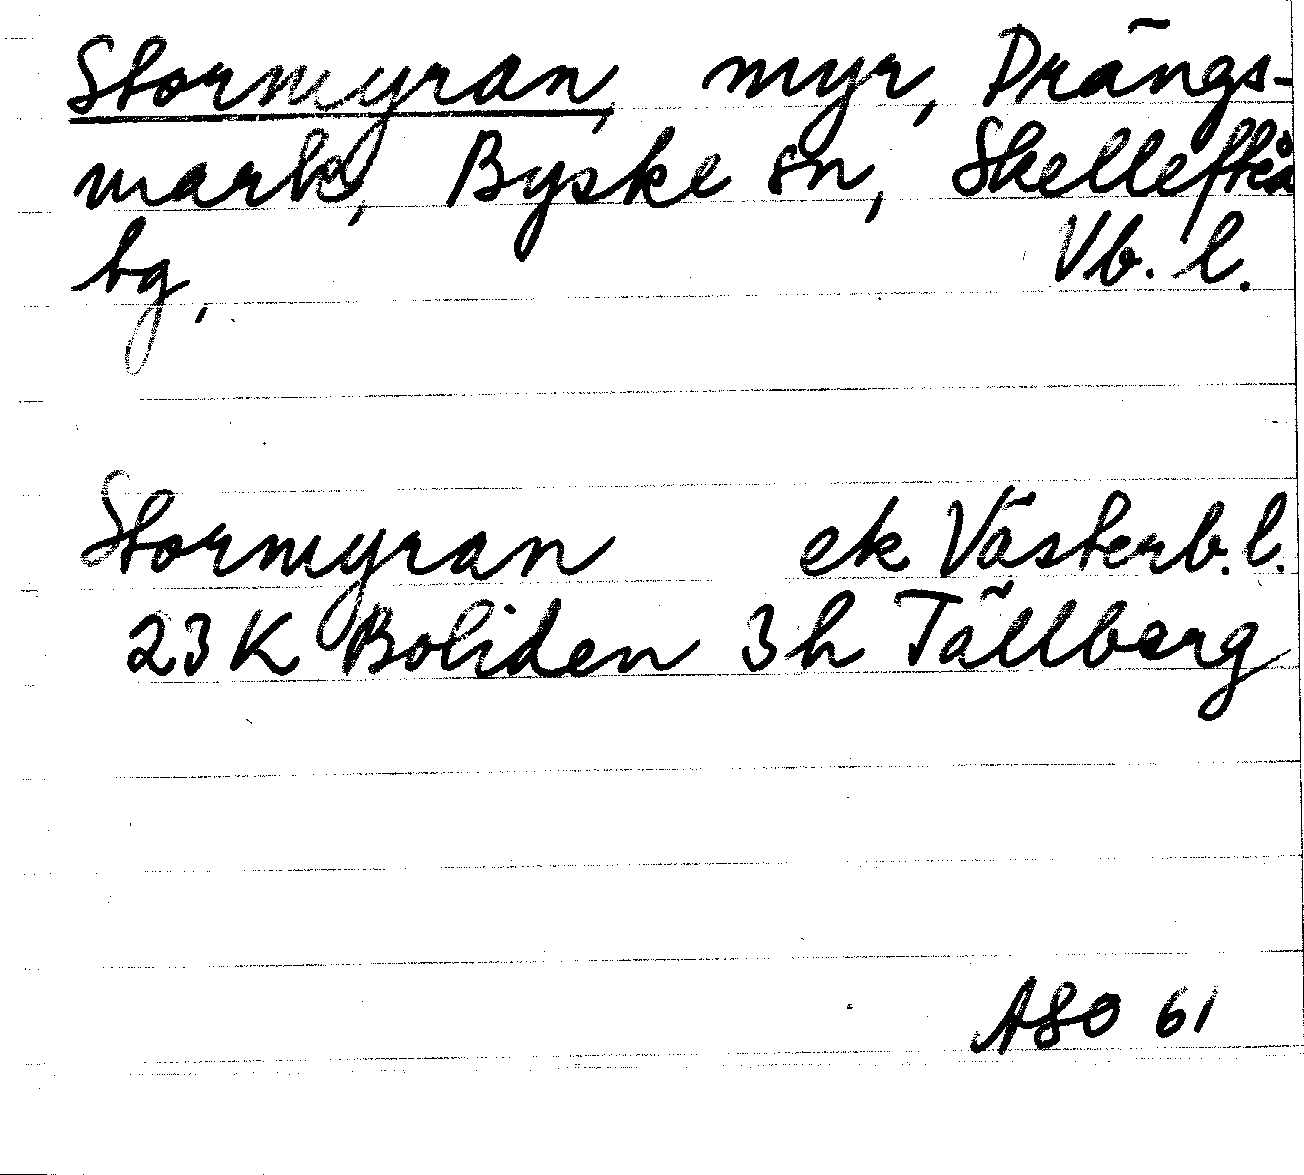 Stormyran, myr, Drängs-
mark, Byske sn, Skellefteå
bg, Vb. l.
Stormyran ek Västerb. l.
23 K Boliden 3h Tällberg
ASO 61